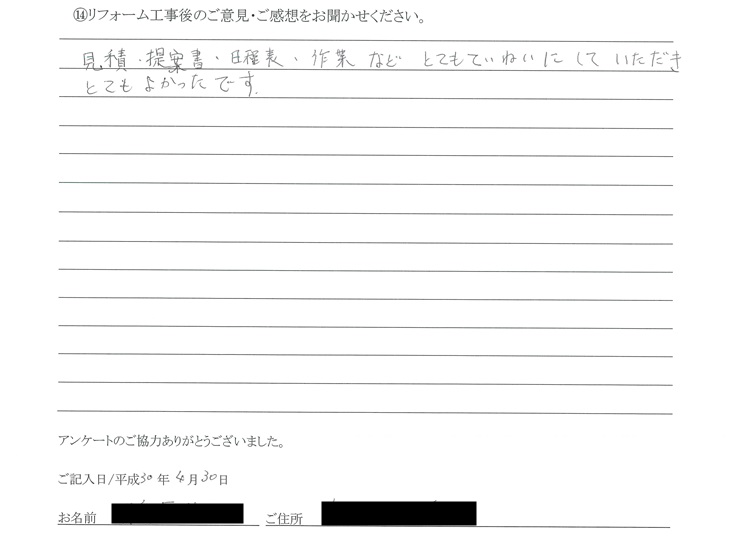 ⑭リフォーム工事後のご意見・ご感想をお聞かせください。
見積・提案書・日程表・作業 など とてもていねいにして いただき
とても よかったです.
アンケートのご協力ありがとうございました。
ご記入日/平成30年 4月 30日
お名前 ご住所